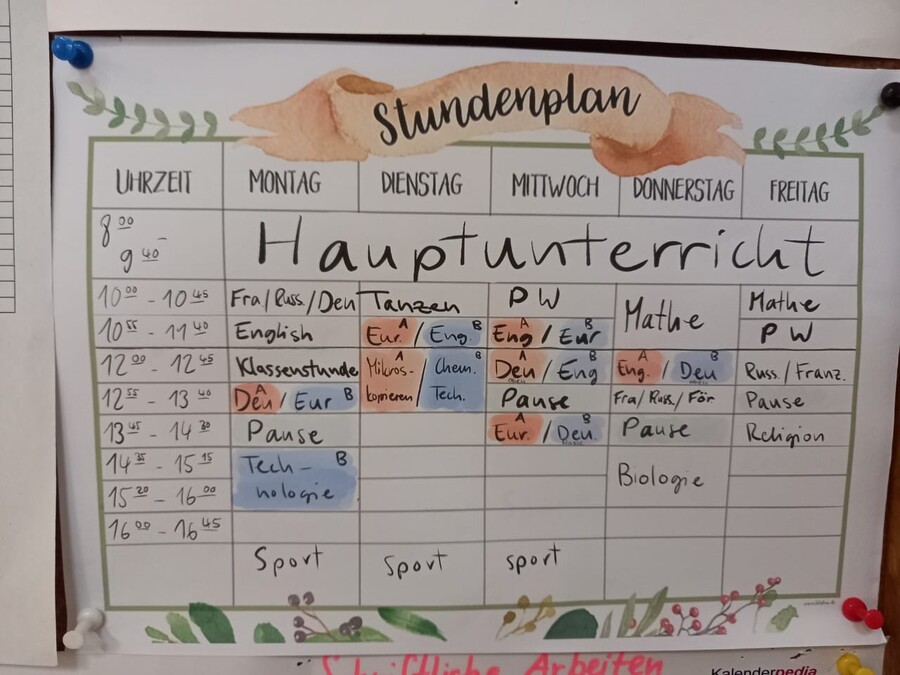 Stundenplan
UHRZEIT MONTAG DIENSTAG MITTWOCH DONNERSTAG FREITAG
8 00 - 9 40 Hauptunterricht
10 00 - 10 45 Fra/Russ./Deu Tanzen PW Mathe Mathe
10 55 - 11 40 English Eur. A / Eng. B Eng A / Eur B PW
12 00 - 12 45 Klassenstunde Mikros- A / Chem. B Deu A / Eng B Eng. A / Deu B Russ./Franz.
12 55 - 13 40 Deu A / Eur B kopieren / Tech. Pause Fra/Russ/För Pause
13 45 - 14 30 Pause Eur. A / Deu B Pause Religion
14 35 - 15 15 Tech- B Biologie
15 20 - 16 00 nologie
16 00 - 16 45
Sport Sport sport
Schriftliche Arbeiten
Kalenderpedia